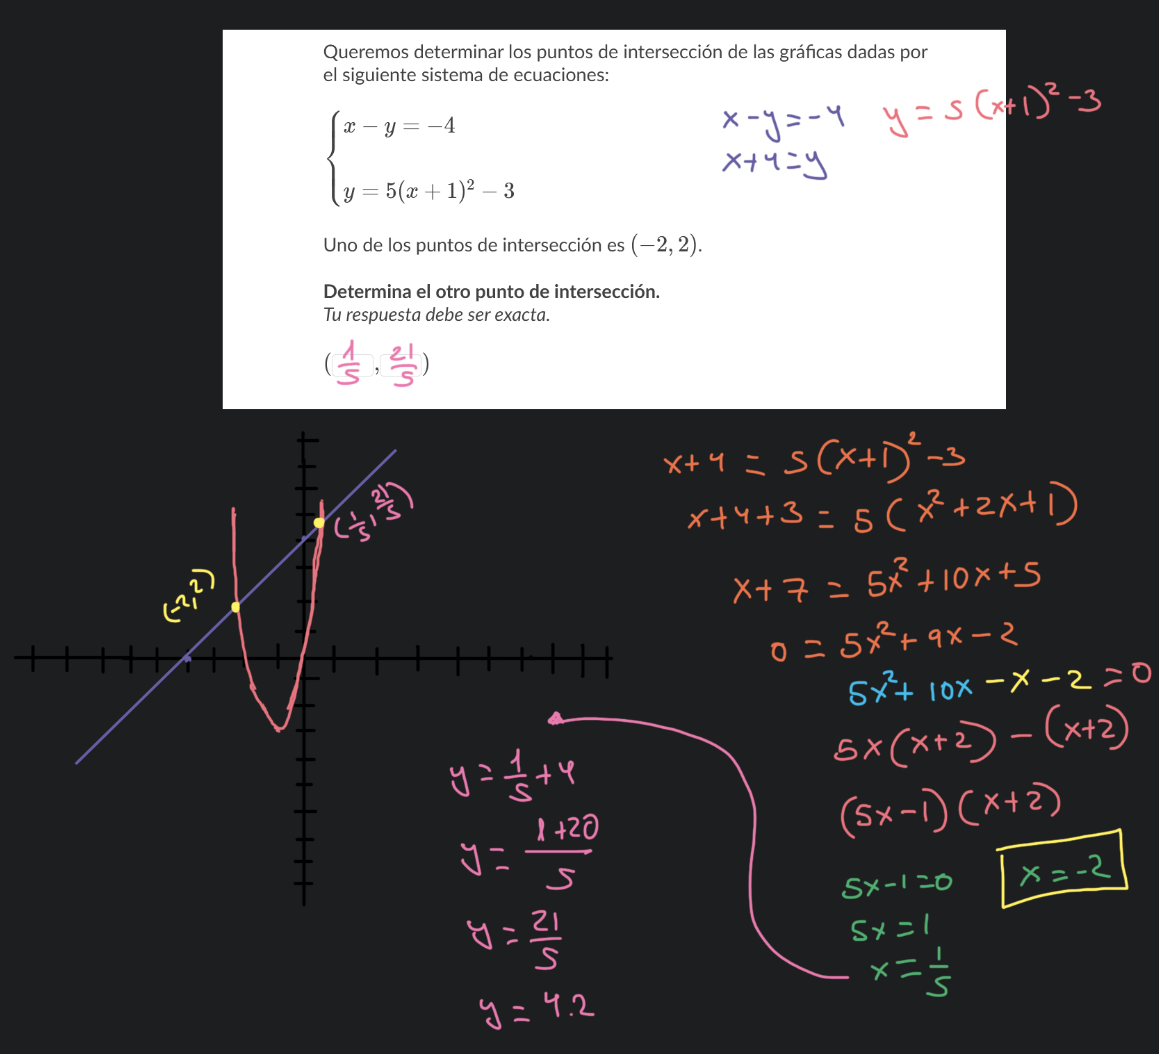 Queremos determinar los puntos de intersección de las gráficas dadas por
el siguiente sistema de ecuaciones:
x − y = −4
y = 5(x + 1)² − 3
x-y=-4
x+4=y
y = 5(x+1)²-3
Uno de los puntos de intersección es (−2, 2).
Determina el otro punto de intersección.
Tu respuesta debe ser exacta.
(1/5, 21/5)
(1/5, 21/5)
(-2, 2)
x+4 = 5(x+1)²-3
x+4+3 = 5(x²+2x+1)
x+7 = 5x²+10x+5
0 = 5x²+9x-2
5x²+10x-x-2=0
5x(x+2)-(x+2)
(5x-1)(x+2)
5x-1=0
5x=1
x=1/5
x=-2
y=1/5+4
y=1+20/5
y=21/5
y=4.2